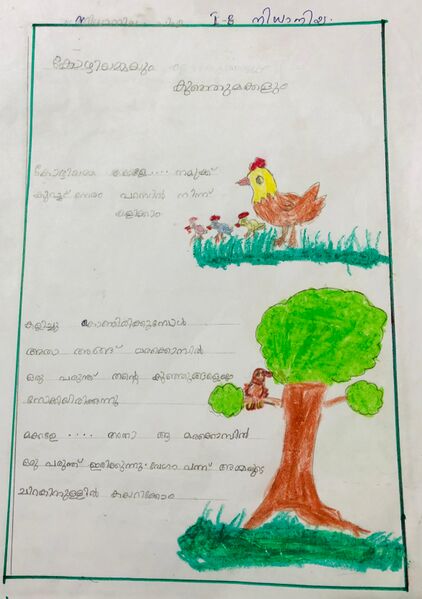 I-B നിധാനിയ.
കോഴിയമ്മയും
കുഞ്ഞുമക്കളും
കോഴിയമ്മ മക്കളേ.... നമുക്ക്
കുറച്ച് നേരം പറമ്പിൽ നിന്ന്
കളിക്കാം
കളിച്ചു കൊണ്ടിരിക്കുമ്പോൾ
അതാ അങ്ങ് മരക്കൊമ്പിൽ
ഒരു പരുന്ത് തന്റെ കുഞ്ഞുങ്ങളെ
നോക്കിയിരിക്കുന്നു
മക്കളേ .... അതാ ആ മരക്കൊമ്പിൽ
ഒരു പരുന്ത് ഇരിക്കുന്നു. വേഗം വന്ന് അമ്മയുടെ
ചിറകിനുള്ളിൽ കയറിക്കോ